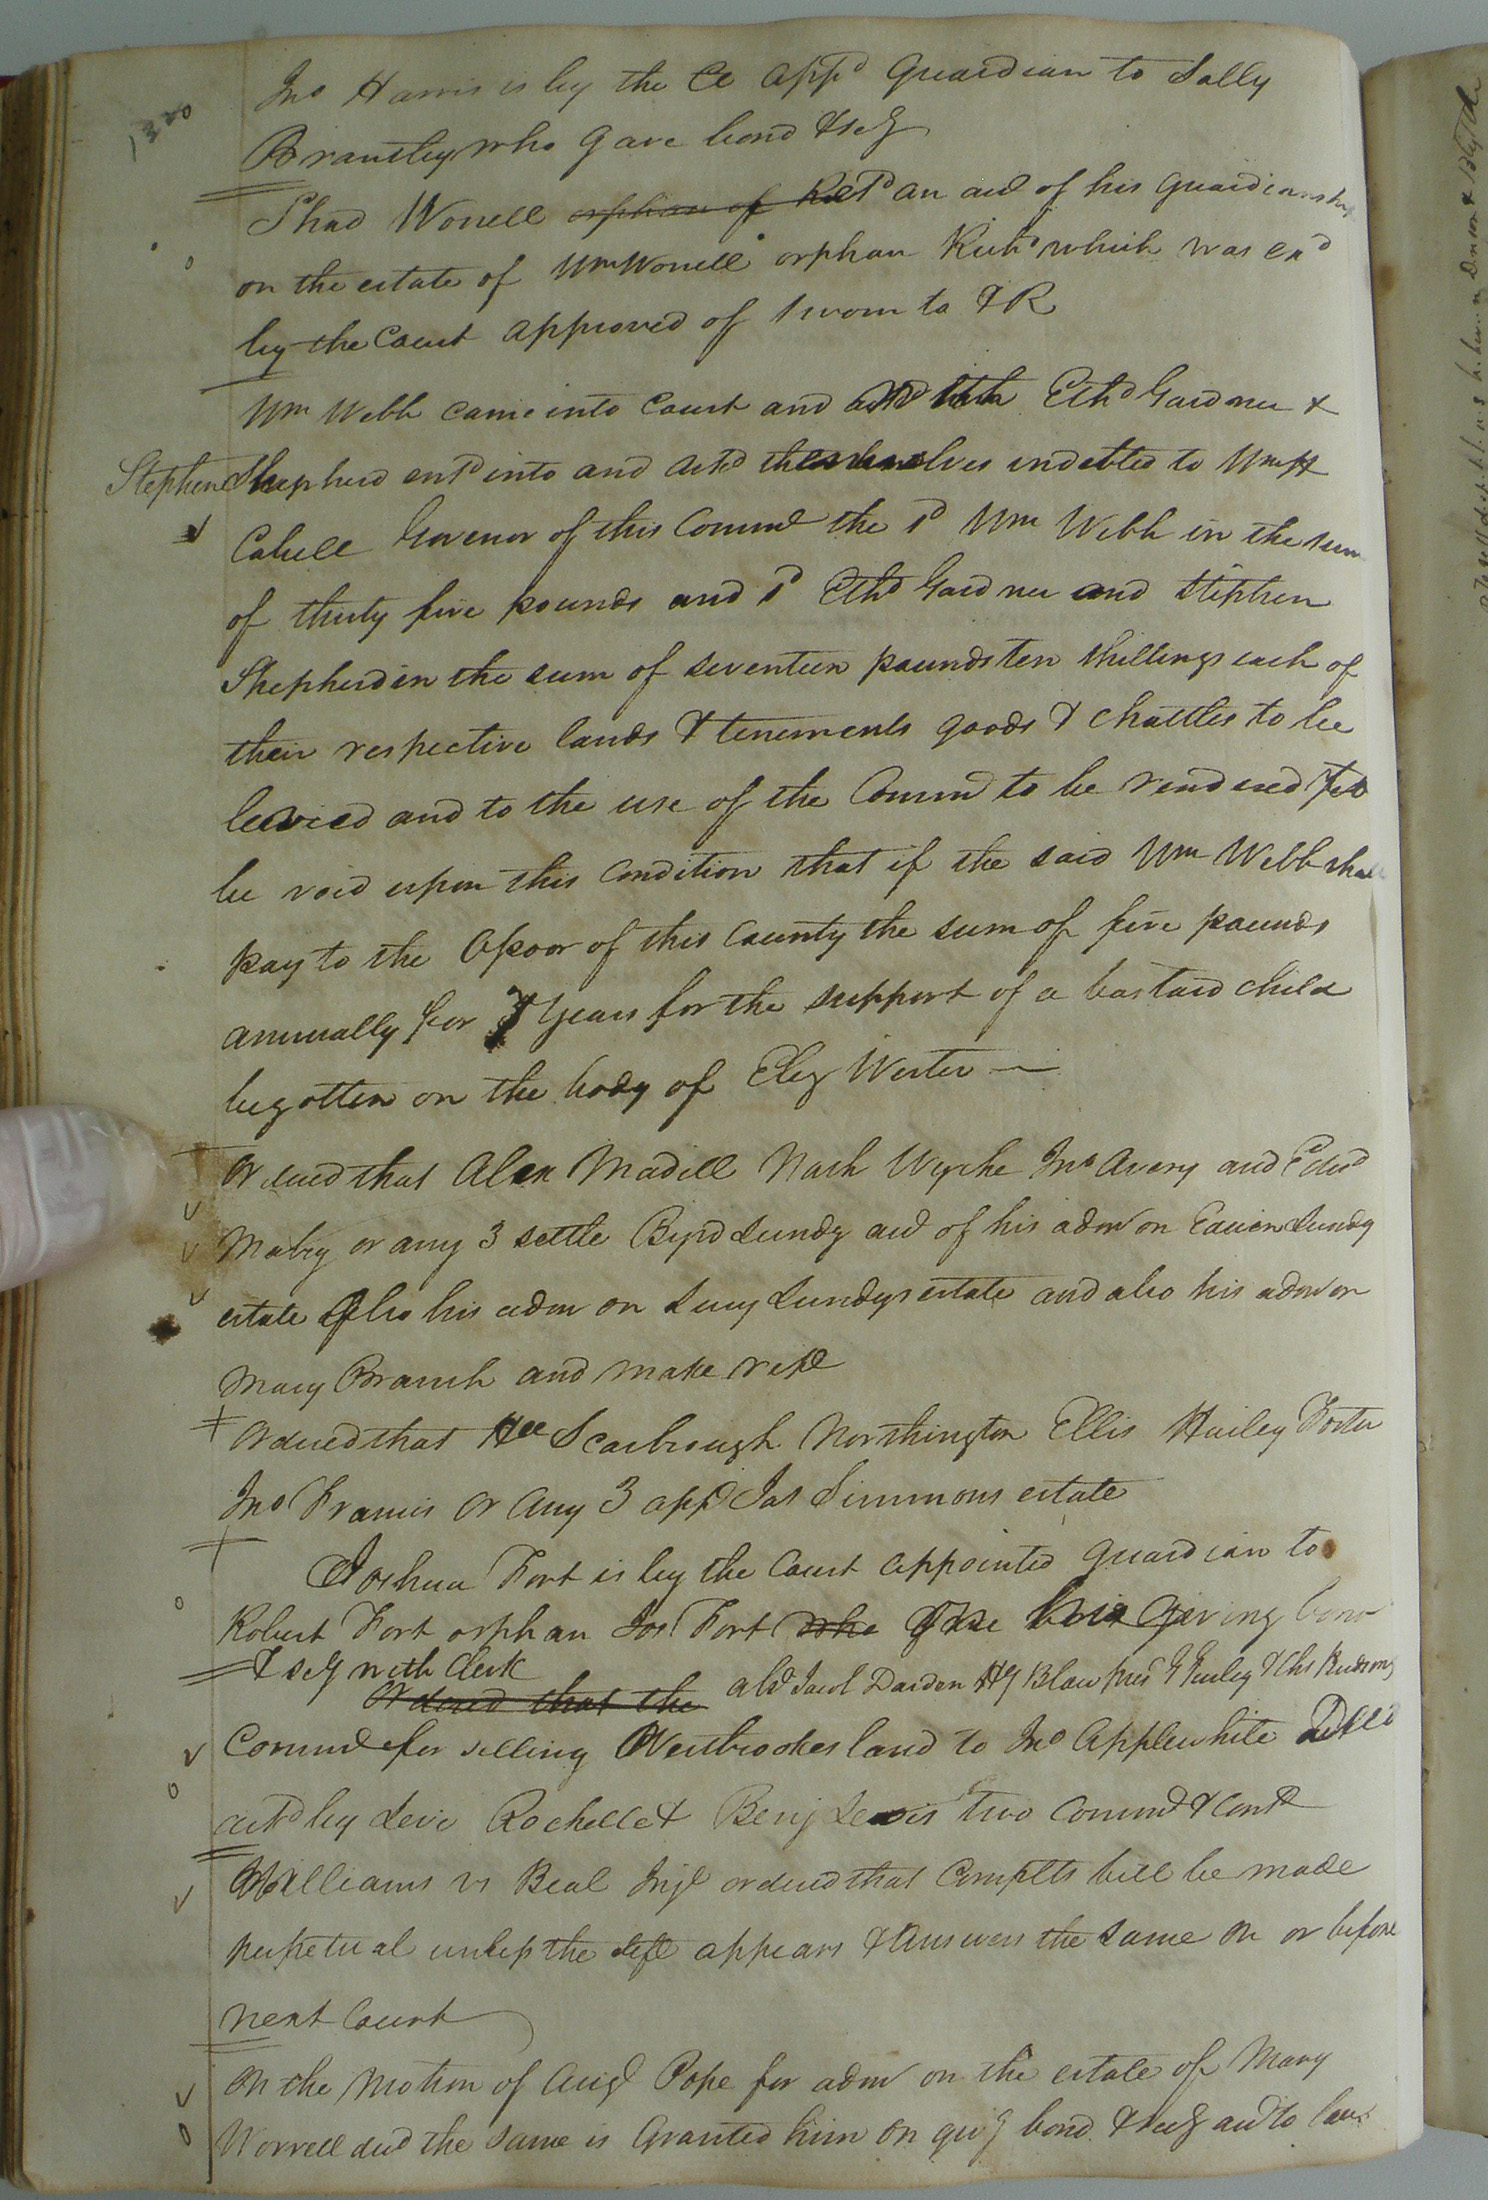 Jno Harris is by the Ct appd Guardian to Sally
Brantley who gave bond & secy
Shad Worrell orphan of Retd an acct of his Guardianship
on the estate of Wm Worrell orphan Richd which was exd
by the Court approved of sworn to & R
Wm Webb came into Court and with Ethd Gardner &
Stephen Shepherd entd into and ackd themselves indebted to Wm H
Cabell Govenor of this Commd the sd Wm Webb in the sum
of thirty five pounds and sd Ethd Gardner and Stephen
Shepherd in the sum of seventeen pounds ten shillings each of
their respective lands & tenements goods & chattles to be
levied and to the use of the Comm to be rendered Yet to
be void upon this Condition that if the said Wm Webb shall
pay to the Opoor of this County the sum of five pounds
annually for 7 years for the support of a bastard child
begotten on the body of Eliz Wester
Ordered that Alex Madill Nath Wyche Jno Avery and Edwd
Mabry or any 3 settle Byrd Lundy acct of his admr on Lundy
estate Also his admr on Lucy Lundys estate and also his admr on
Mary Branch and make rept
Ordered that Hll Scarbrough Northington Ellis Hailey Foster
Jno Francis or any 3 appd Jas Simmons estate
Joshua Fort is by the Court appointed Guardian to
Robert Fort orphan Jos Fort who giving bond
& secy with Clerk
Ordered that the abst Jacol Darden H G Blow & Chs Hudsons
Commd for selling Westbrookes land to Jno Applewhite Deed
ackd by Levi Rochelle & Benj Lewis two Commd & Contd
Williams vs Beal Injt ordered that Complts bill be made
perpetual unless the deft appears & answers the same on or before
next Court
On the motion of Aug Pope for admr on the estate of Mary
Worrell decd the same is Granted him on givg bond & secy acd to law